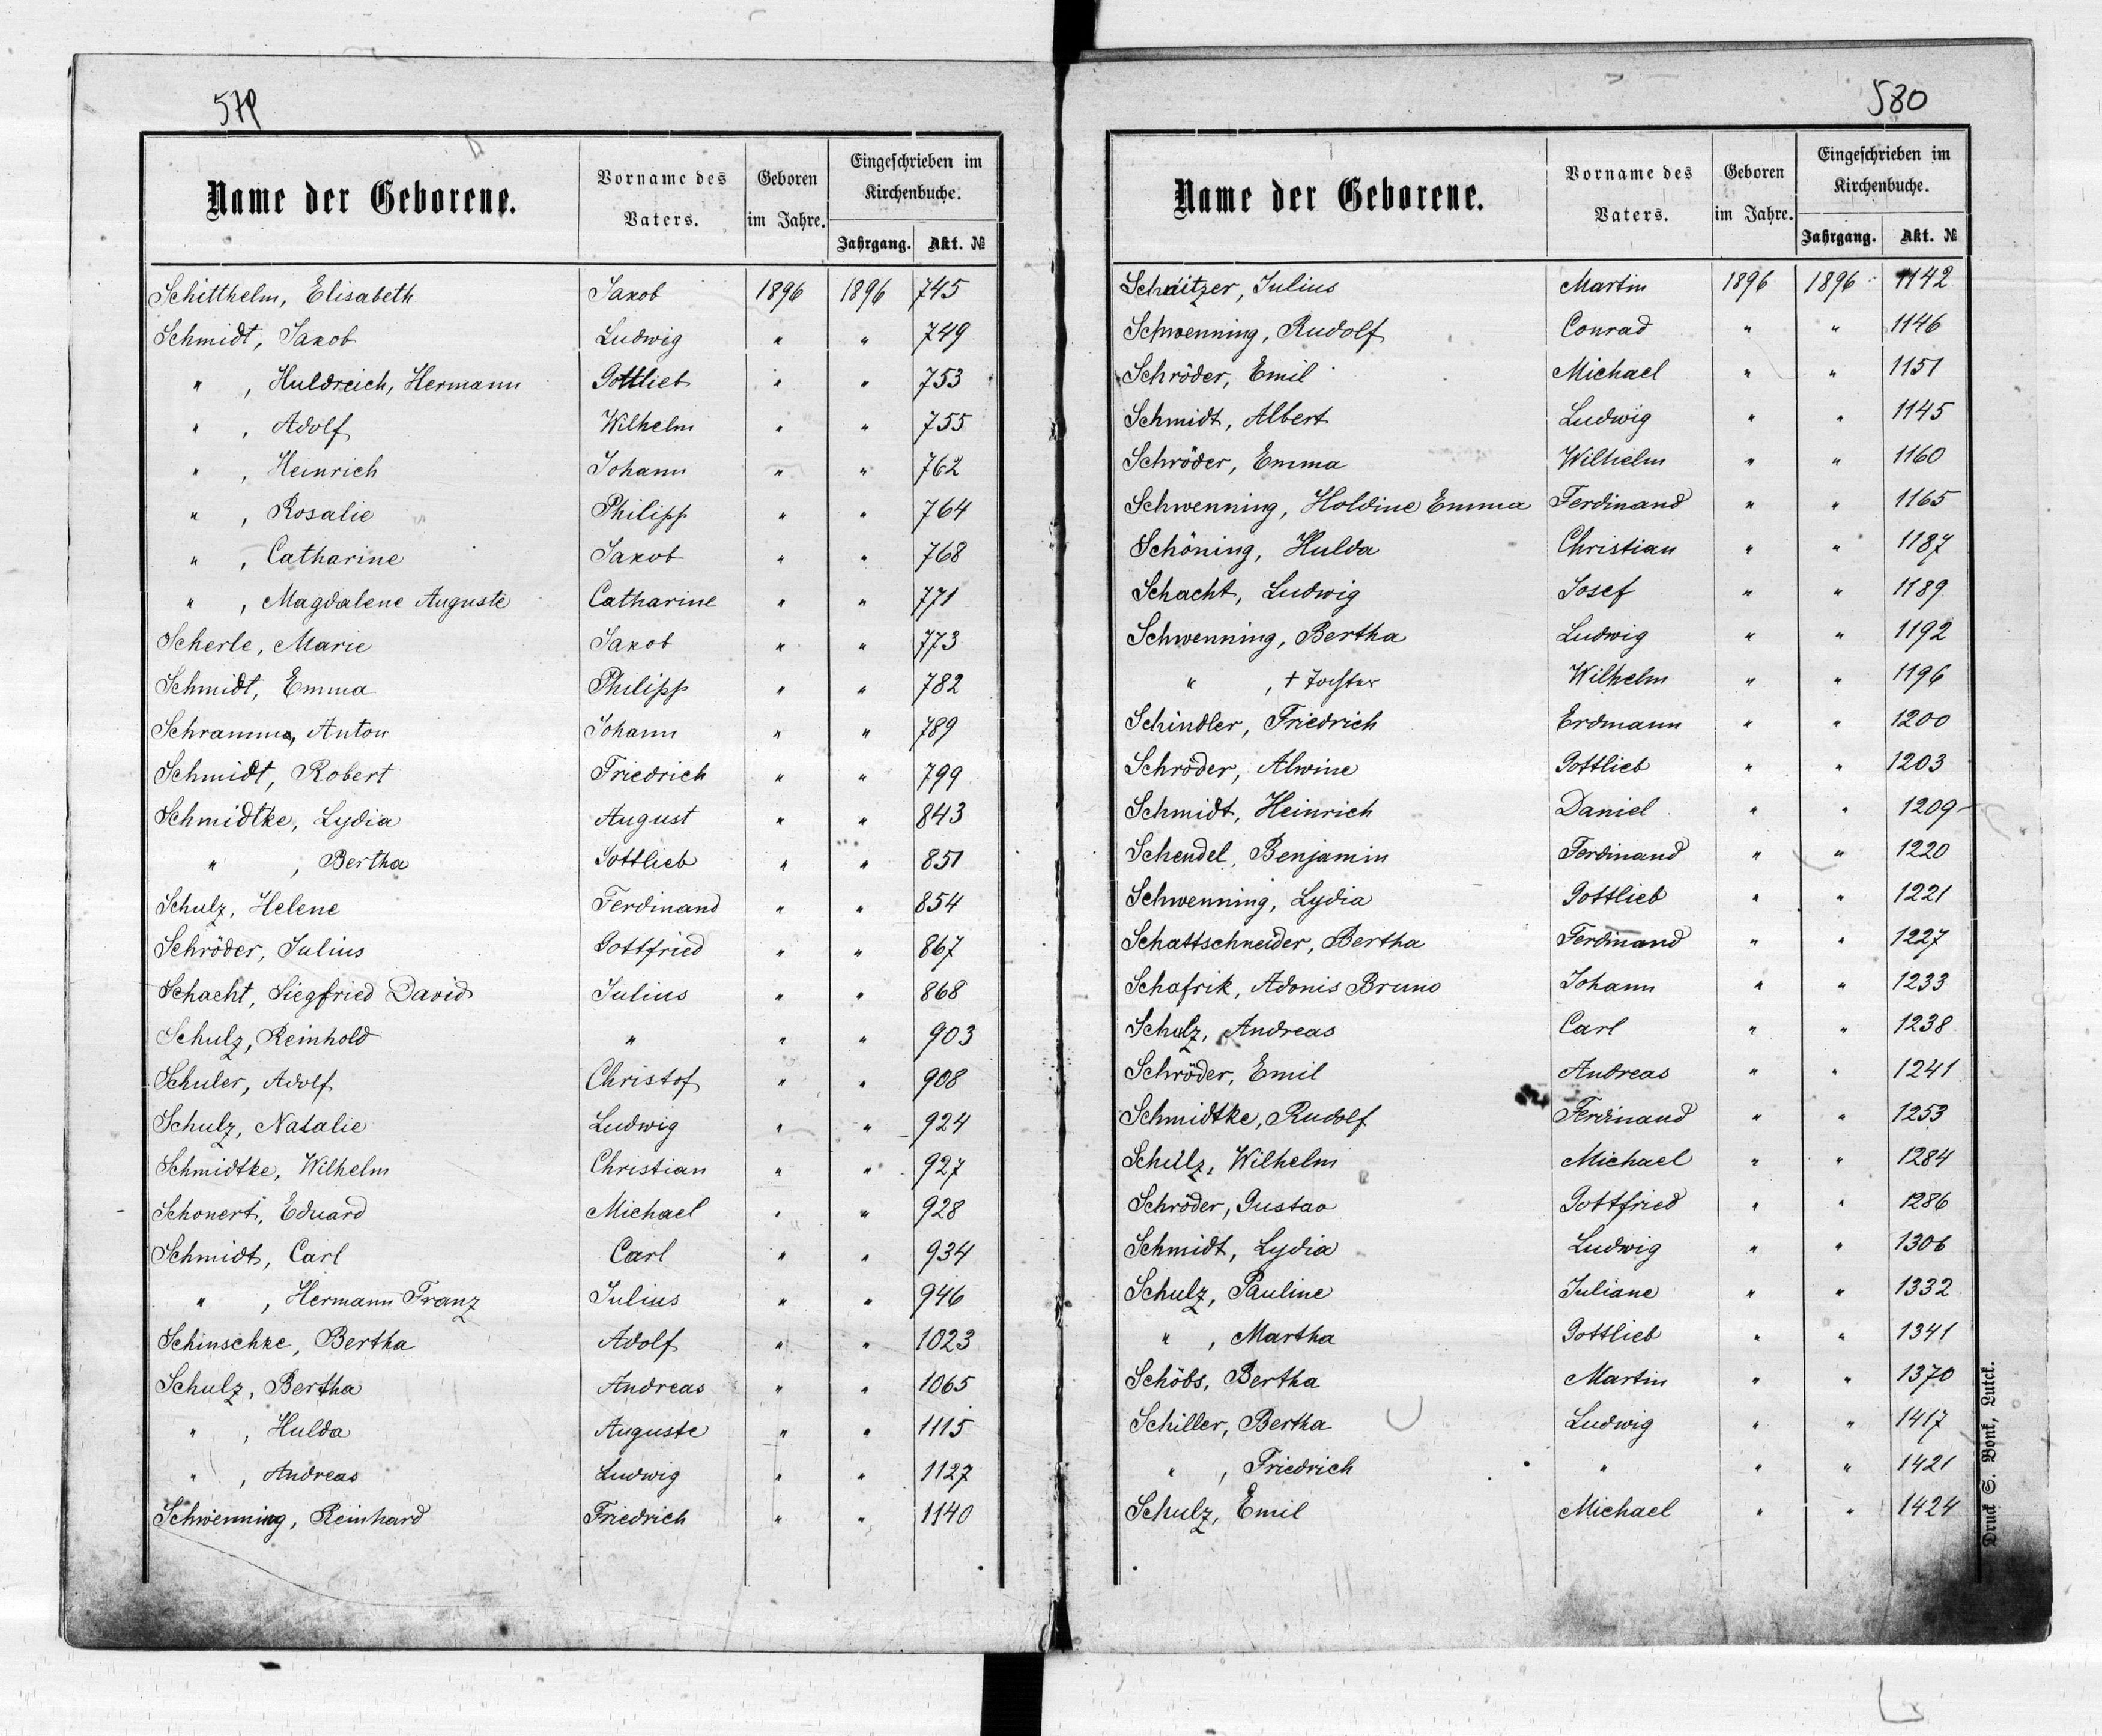 579
Name der Geborene. Vorname des Vaters. Geboren im Jahre. Eingeschrieben im Kirchenbuche. Jahrgang. Akt. №
Schitthelm, Elisabeth Jakob 1896 1896 745
Schmidt, Jakob Ludwig " " 749
" , Huldreich, Hermann Gottlieb " " 753
" , Adolf Wilhelm " " 755
" , Heinrich Johann " " 762
" , Rosalie Philipp " " 764
" , Catharine Jakob " " 768
" , Magdalene Auguste Catharine " " 771
Scherle, Marie Jakob " " 773
Schmidt, Emma Philipp " " 782
Schramm, Anton Johann " " 789
Schmidt, Robert Friedrich " " 799
Schmidtke, Lydia August " " 843
" , Bertha Gottlieb " " 851
Schulz, Helene Ferdinand " " 854
Schröder, Julius Gottfried " " 867
Schacht, Siegfried David Julius " " 868
Schulz, Reinhold " " " 903
Schuler, Adolf Christof " " 908
Schulz, Natalie Ludwig " " 924
Schmidtke, Wilhelm Christian " " 927
Schonert, Eduard Michael " " 928
Schmidt, Carl Carl " " 934
" , Hermann Franz Julius " " 946
Schinschke, Bertha Adolf " " 1023
Schulz, Bertha Andreas " " 1065
" , Hulda Auguste " " 1115
" , Andreas Ludwig " " 1127
Schwenning, Reinhard Friedrich " " 1140
580
Name der Geborene. Vorname des Vaters. Geboren im Jahre. Eingeschrieben im Kirchenbuche. Jahrgang. Akt. №
Julius Martin 1896 1896 1142
Schwenning, Rudolf Conrad " " 1146
Schröder, Emil Michael " " 1151
Schmidt, Albert Ludwig " " 1145
Schröder, Emma Wilhelm " " 1160
Schwenning, Holdine Emma Ferdinand " " 1165
Schöning, Hulda Christian " " 1187
Schacht, Ludwig Josef " " 1189
Schwenning, Bertha Ludwig " " 1192
" , † Wilhelm " " 1196
Schindler, Friedrich Erdmann " " 1200
Schröder, Alwine Gottlieb " " 1203
Schmidt, Heinrich Daniel " " 1209
Schendel, Benjamin Ferdinand " " 1220
Schwenning, Lydia Gottlieb " " 1221
Schattschneider, Bertha Ferdinand " " 1227
Schafrik, Adonis Bruno Johann " " 1233
Schulz, Andreas Carl " " 1238
Schröder, Emil Andreas " " 1241
Schmidtke, Rudolf Ferdinand " " 1253
Schulz, Wilhelm Michael " " 1284
Schröder, Gustav Gottfried " " 1286
Schmidt, Lydia Ludwig " " 1306
Schulz, Pauline Juliane " " 1332
" , Martha Gottlieb " " 1341
Schöbs, Bertha Martin " " 1370
Schiller, Bertha Ludwig " " 1417
" , Friedrich " " " 1421
Schulz, Emil Michael " " 1424
Druck S. Bonk, Lutck.